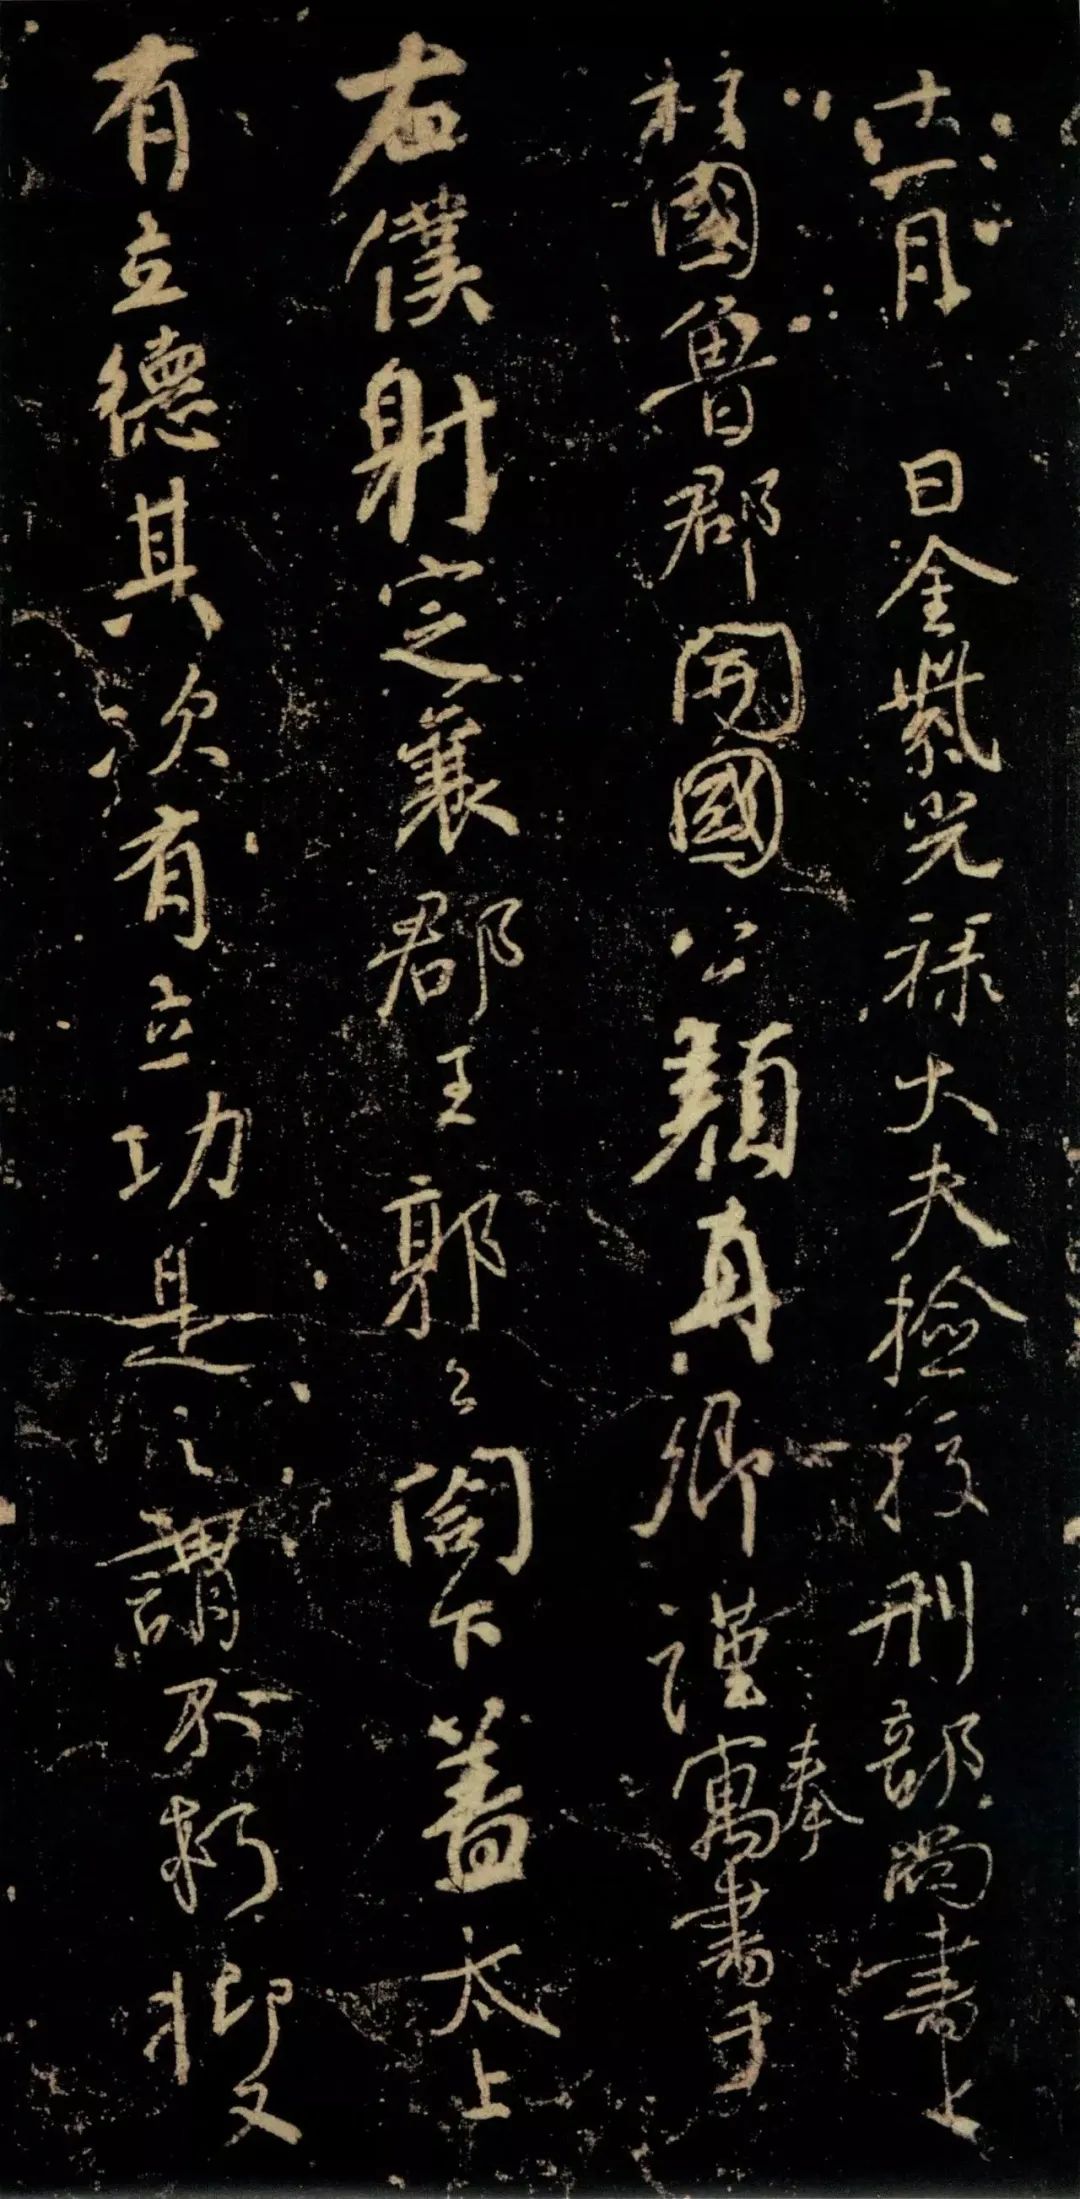 十一月日金紫光禄大夫撿挍刑部尚書上
柱國魯郡開國公顏真卿謹奉寓書于
右僕射定襄郡王郭公閤下蓋太上
有立德其次有立功是之謂不朽抑又